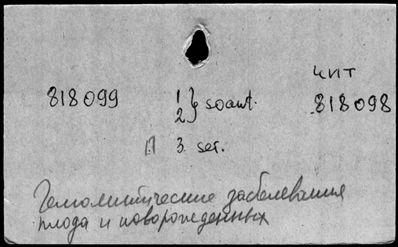 чит
818099 1 2 } soct. 818098
П 3. ser.
Гемолитические заболевания
плода и новорожденных